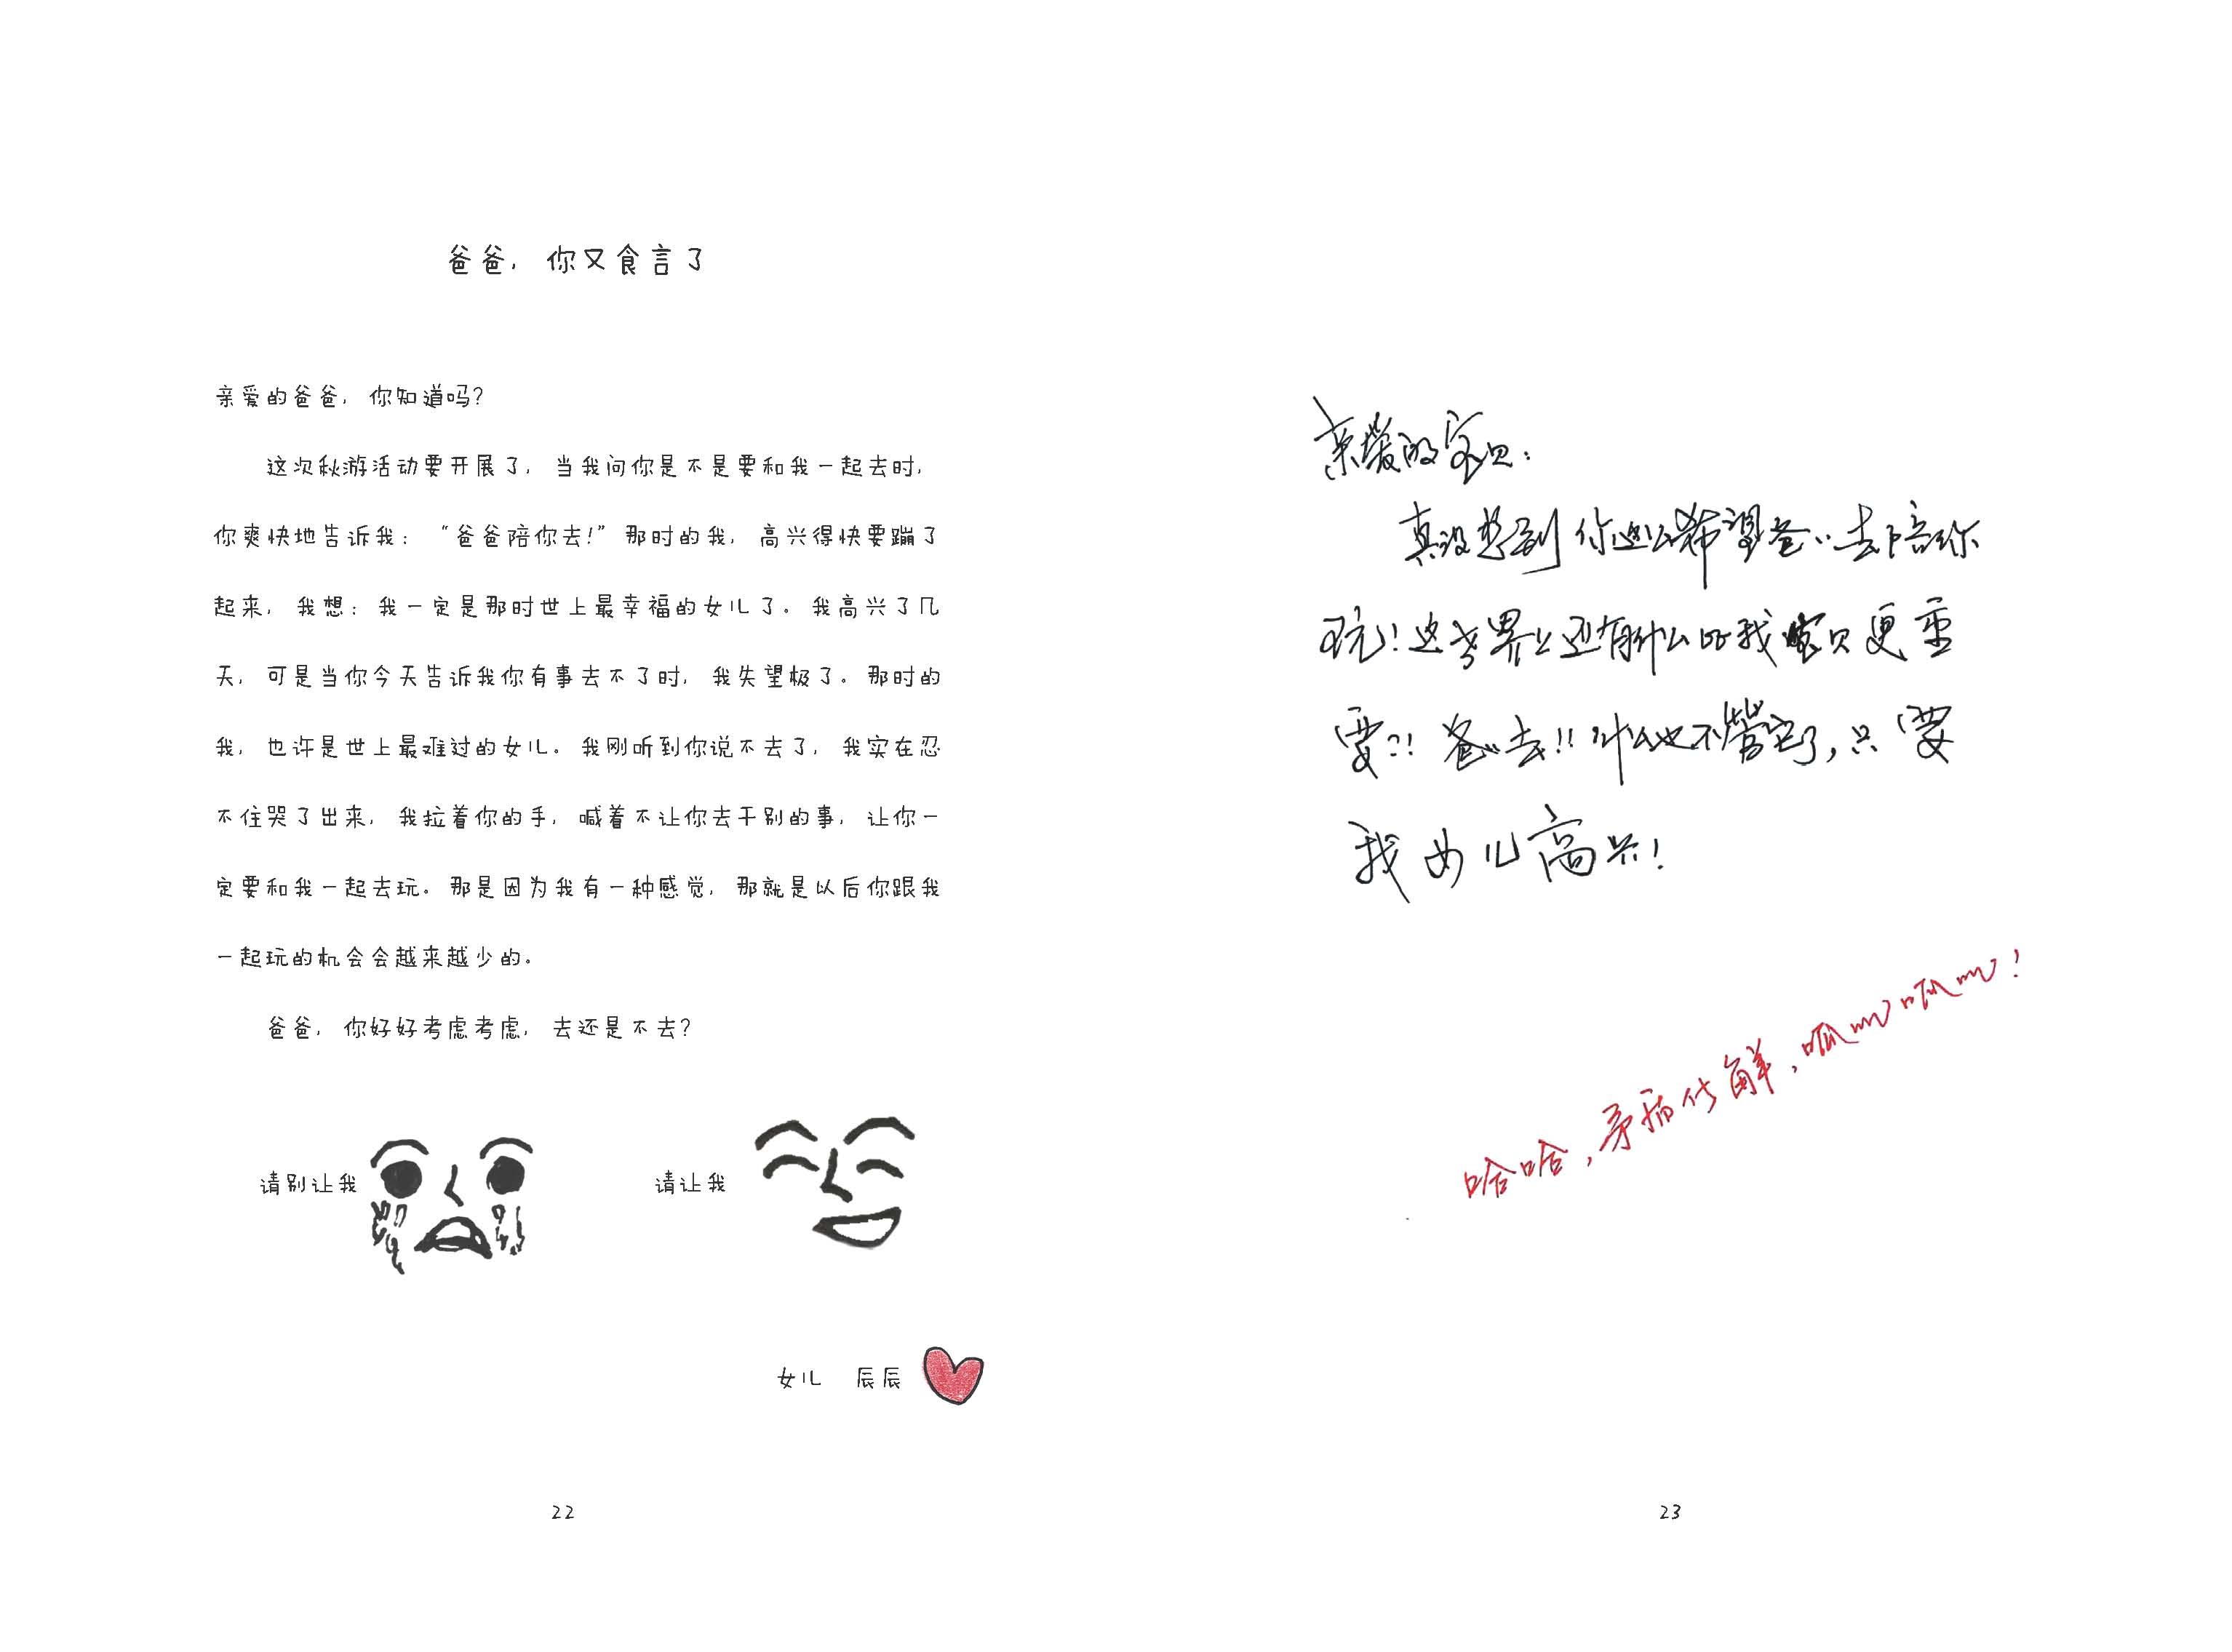 爸爸，你又食言了
亲爱的爸爸，你知道吗？
这次秋游活动要开展了，当我问你是不是要和我一起去时，
你爽快地告诉我：“爸爸陪你去！”那时的我，高兴得快要蹦了
起来，我想：我一定是那时世上最幸福的女儿了。我高兴了几
天，可是当你今天告诉我你有事去不了时，我失望极了。那时的
我，也许是世上最难过的女儿。我刚听到你说不去了，我实在忍
不住哭了出来，我拉着你的手，喊着不让你去干别的事，让你一
定要和我一起去玩。那是因为我有一种感觉，那就是以后你跟我
一起玩的机会会越来越少的。
爸爸，你好好考虑考虑，去还是不去？
请别让我
请让我
女儿 辰辰
22
亲爱的宝贝：
真没想到你这么希望爸..去陪你
玩！这世界上还有什么比我宝贝更重
要？！爸..去！！什么也不管它了，只要
我女儿高兴！
哈哈，矛盾化解，呱呱！
23